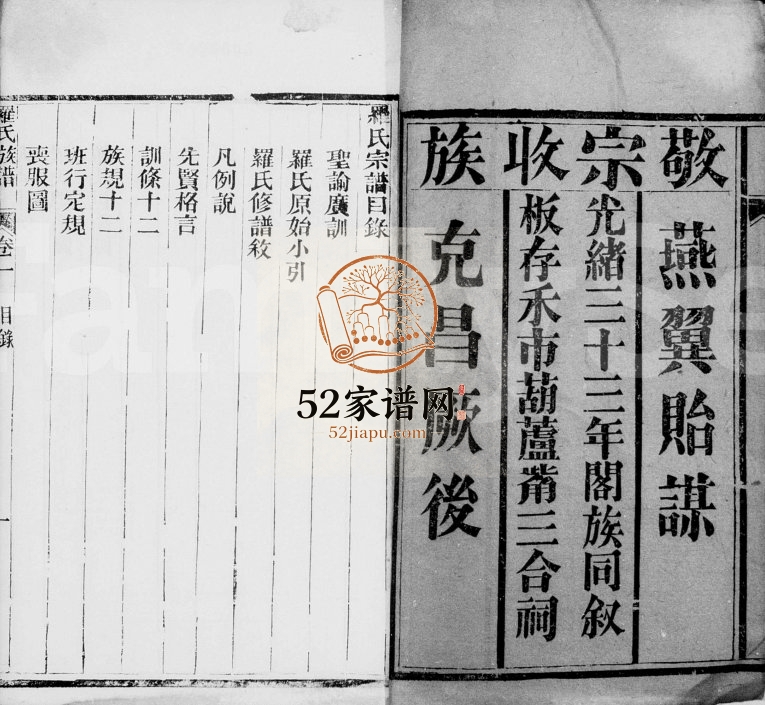 敬宗收族
燕翼貽謀
光緒三十三年閣族同敘
板存禾市葫蘆觜三合祠
克昌厥後
羅氏宗譜目錄
聖諭廣訓
羅氏原始小引
羅氏修譜敘
凡例說
先賢格言
訓條十二
族規十二
班行定規
喪服圖
羅氏族譜
卷一 目錄
一
52家谱网
52jiapu.com